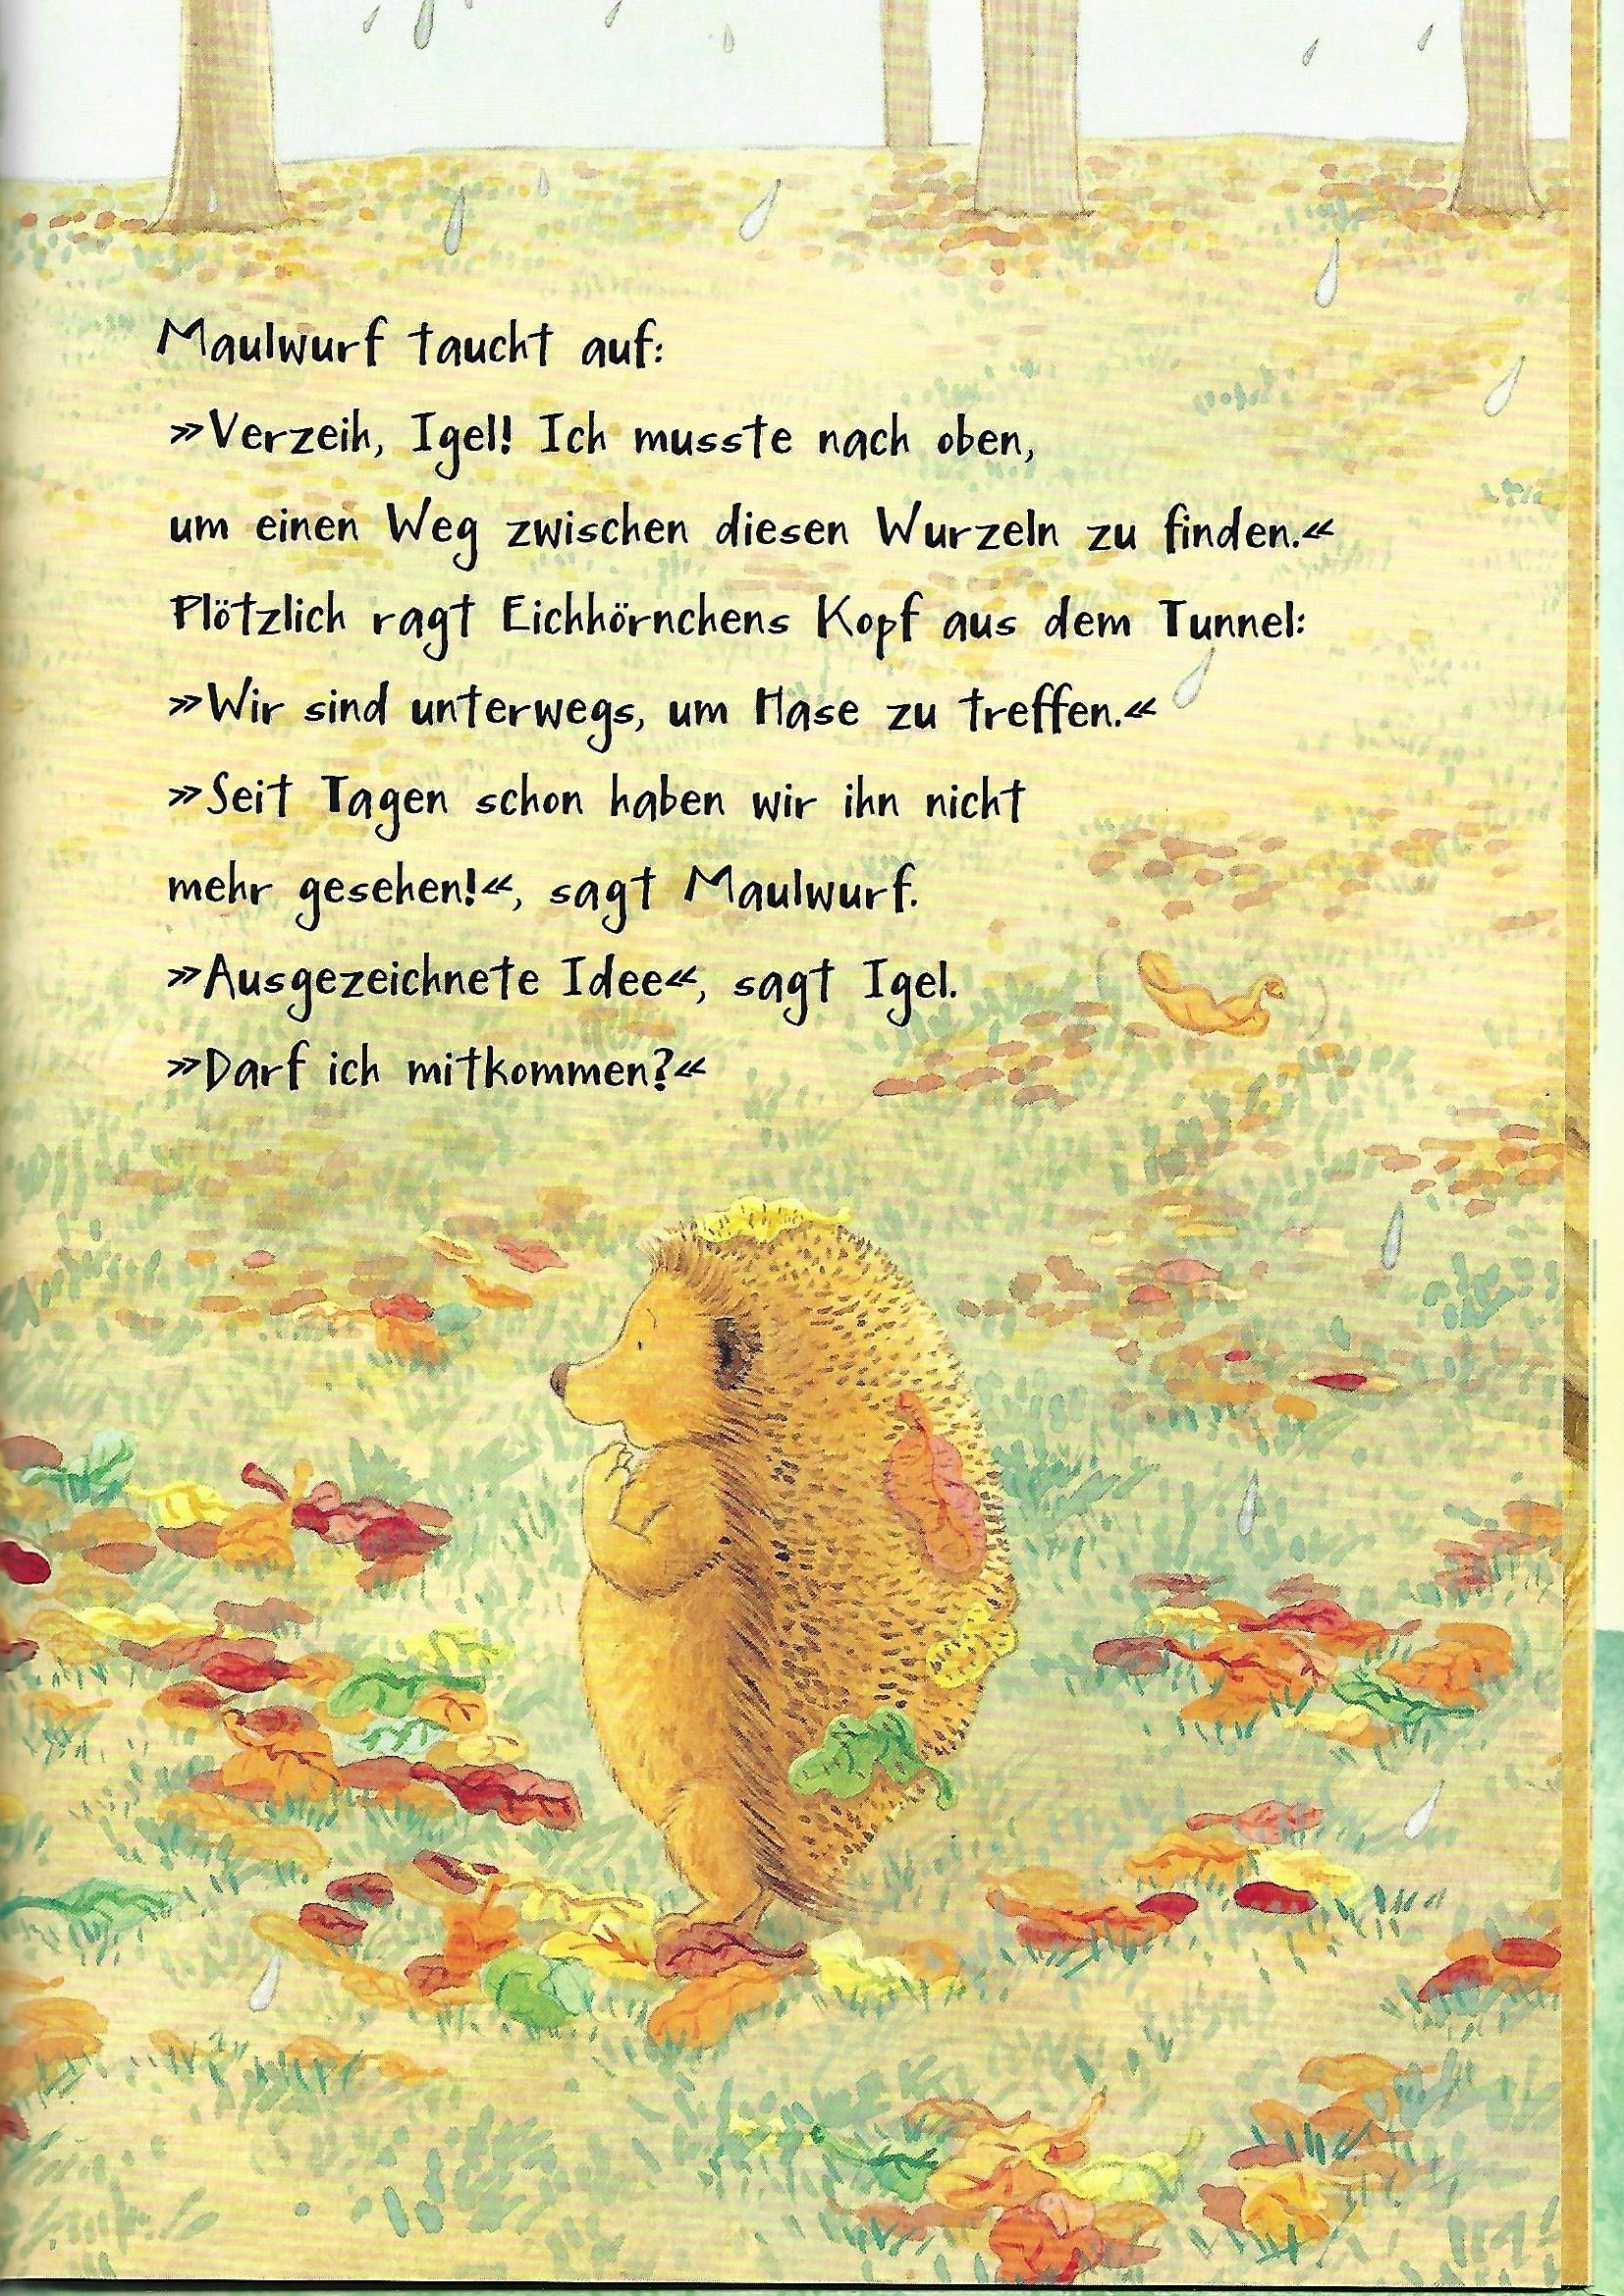 Maulwurf taucht auf:
»Verzeih, Igel! Ich musste nach oben,
um einen Weg zwischen diesen Wurzeln zu finden.«
Plötzlich ragt Eichhörnchens Kopf aus dem Tunnel:
»Wir sind unterwegs, um Hase zu treffen.«
»Seit Tagen schon haben wir ihn nicht
mehr gesehen!«, sagt Maulwurf.
»Ausgezeichnete Idee«, sagt Igel.
»Darf ich mitkommen?«